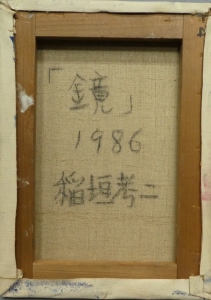 「鏡」
1986
稲垣考二